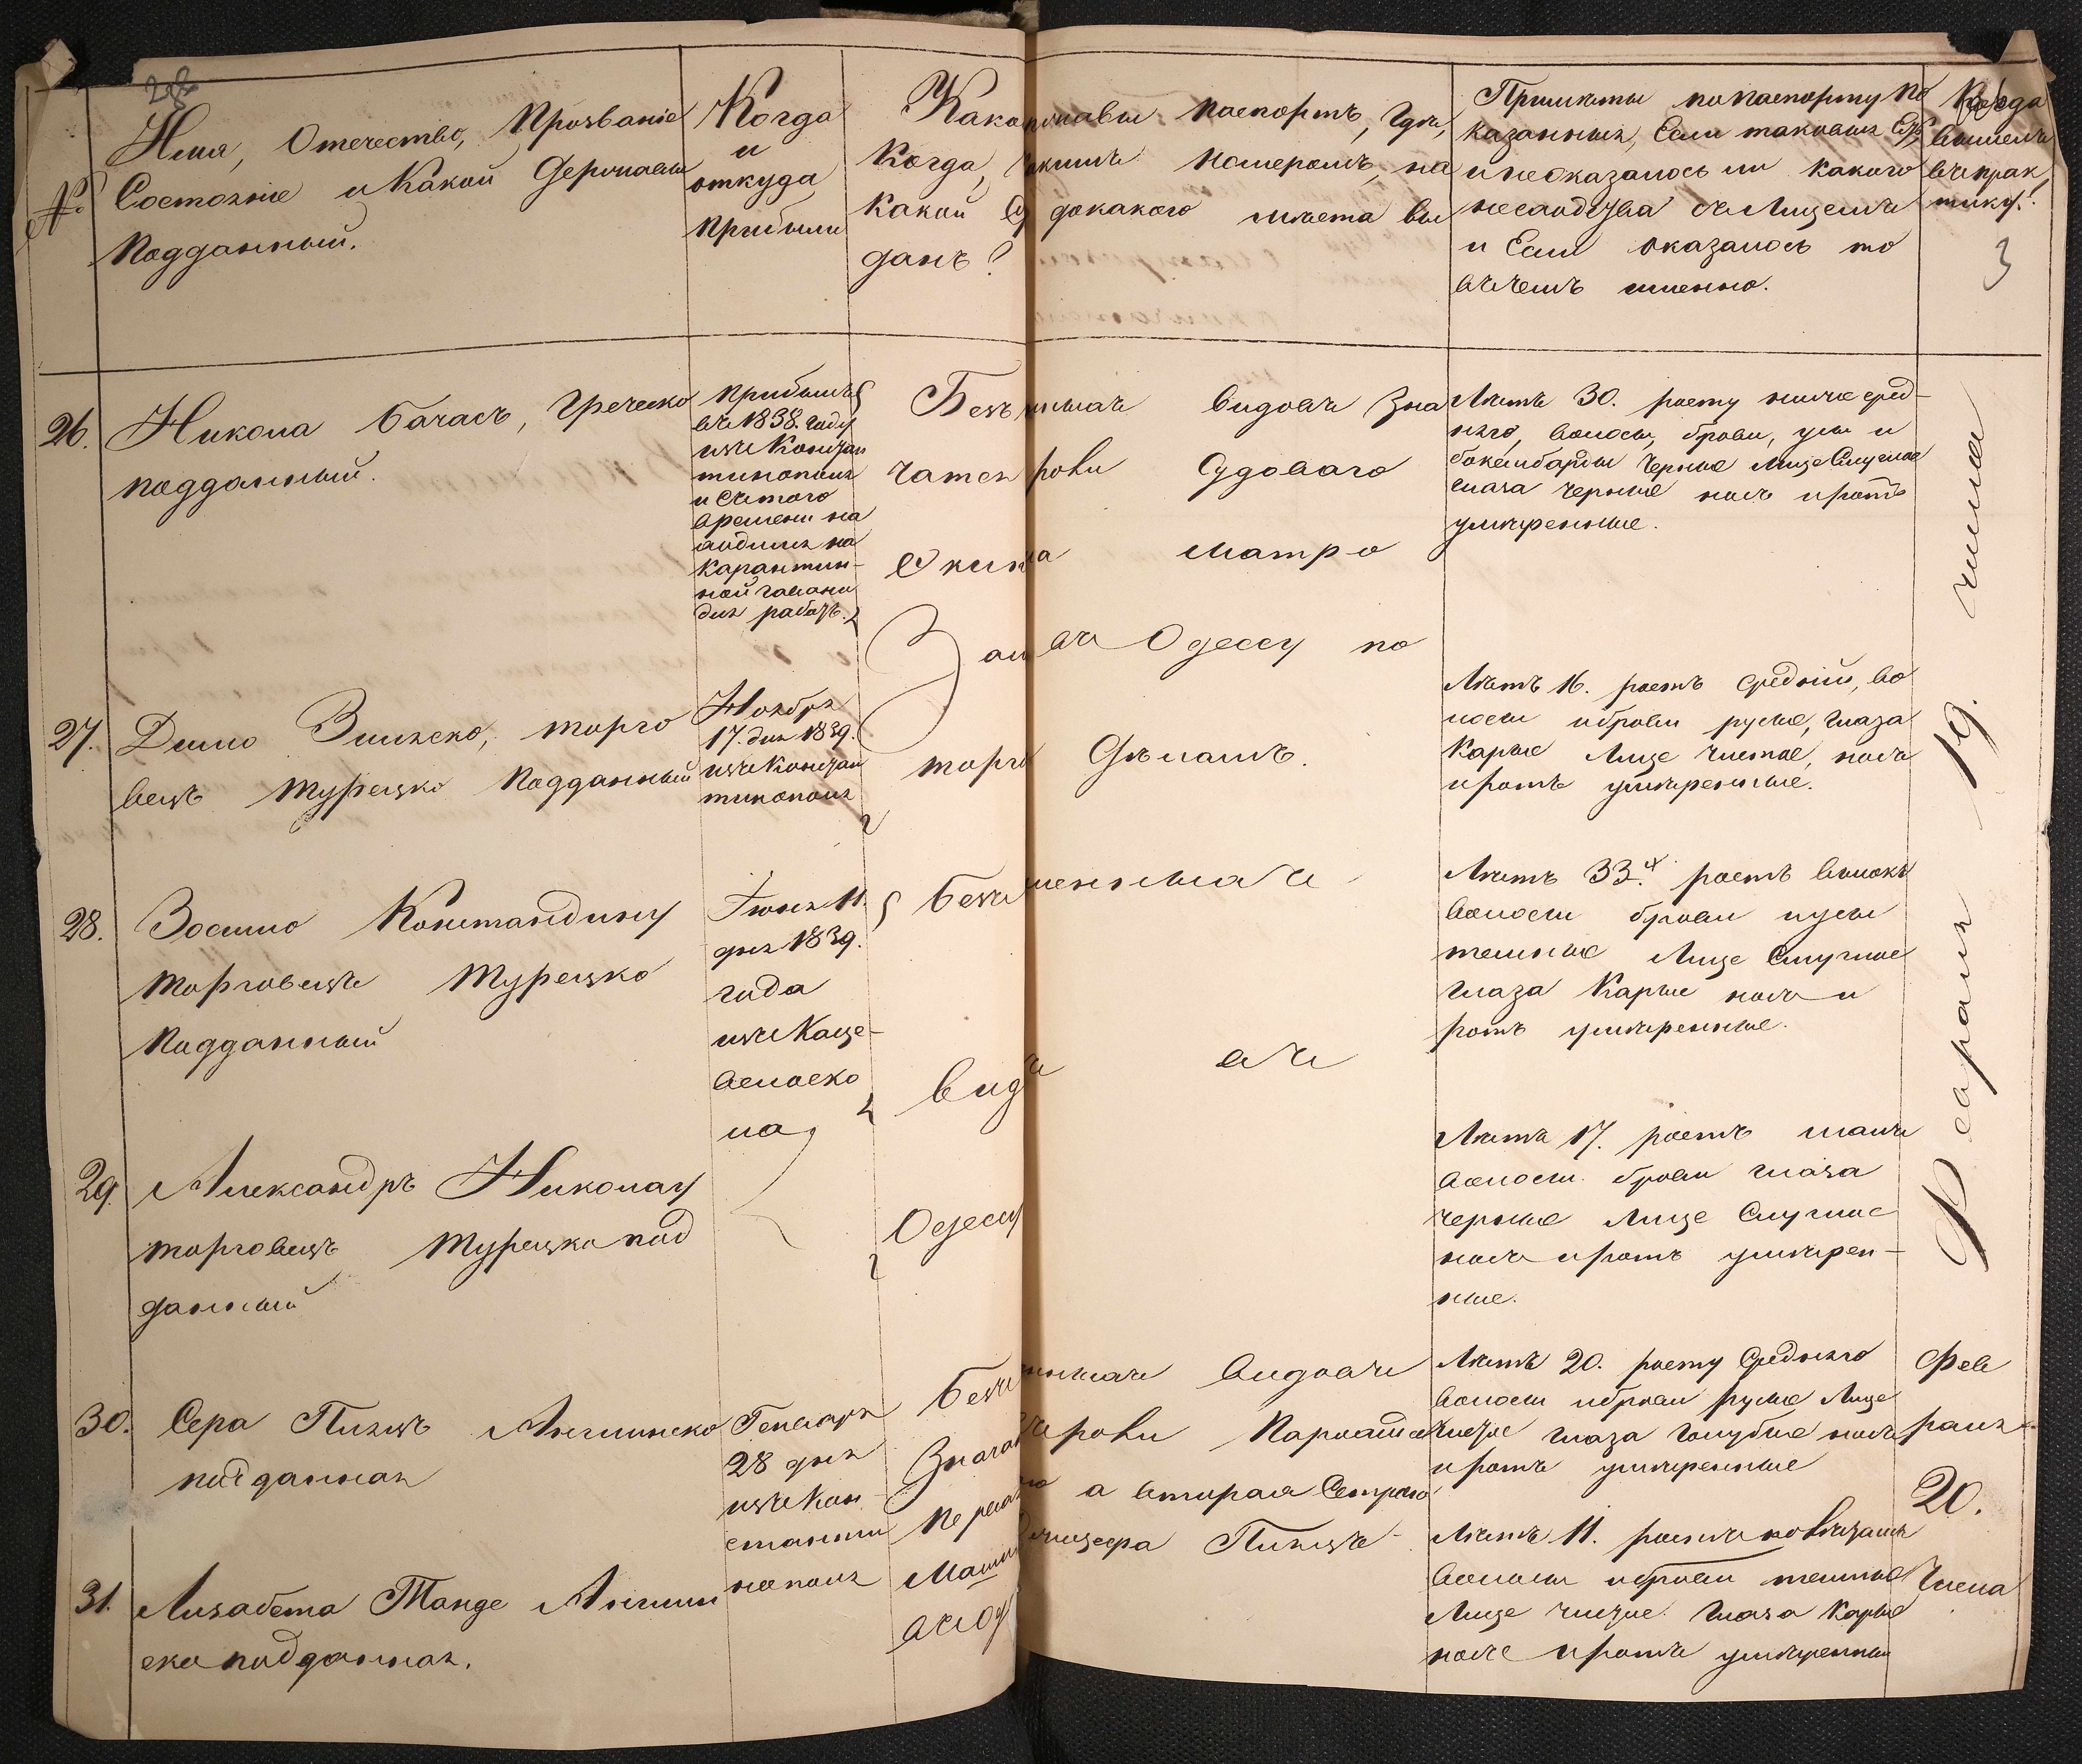 28
№
Имя, Отечество, Прозваніе
Состояніе и Какой Державы
подданный.
Когда
и
откуда
прибыли
Како паспортъ, Гдѣ,
Когда, Номеромъ, на
Какой до какого мѣста вы
данъ?
Примѣты по паспорту по
казанныя, Если таковыя Есть
и неоказалось ли какого
несходства съ Лицемъ
и Если оказалось то
въ чемъ именно.
Когда
вышелъ
въ прак
тику.
3
26.
Никола Бачасъ, Греческо
подданный.
прибылъ
въ 1838. году
изъ Констан
тинополя
и съ того
времени на
ходился на
карантин-
ной гавани
для работъ.
Безъ видовъ зна
чатся ровки Судоваго
Екип а матро
за въ Одессу по
торго Дѣламъ.
Лѣтъ 30. росту ниже сред-
няго, волосы, брови, усы и
бакенбарды черные Лице Смуглое
глаза черные носъ и ротъ
умѣренные.
27.
Димо торго
вецъ турецко подданный
Ноября
17. дня 1839.
изъ Констан
тинополя
Лѣтъ 16. ростъ средній, во
лосы и брови русые, глаза
Карые Лице чистое, носъ
и ротъ умѣренные.
28.
Зосимо Констандину
торговецъ турецко
подданный
Іюня 11.
дня 1839.
года
изъ Каце-
вельско
ла
Безъ именнаго
видъ въ
Одессу
Лѣтъ 33. ростъ высокъ
волосы брови и усы
темные Лице Смуглое
глаза Карые носъ и
ротъ умѣренные.
29.
Александръ Николау
торговецъ турецко под
данный
Лѣтъ 17. ростъ малъ
волосы брови глаза
черные Лице Смуглое
носъ и ротъ умѣрен-
ные.
Февраля 19. числа
30.
Сера Пизъ Англинско
подданная
Генваря
28 дня
изъ Кон
станти
нополя
Безъ видовъ
Значат ровки Пароатъ
а вторая Сестрою
Сера Пизъ
Лѣтъ 20. росту Средняго
волосы и брови русые Лице
чистое глаза голубые носъ
и ротъ умѣренные
Фев
раля
20.
Числа
31.
Лизабета Танде Англин
ско подданная.
Лѣтъ 11. ростъ
волосы и брови темные
Лице чистое. глаза Карые
носъ и ротъ умѣренные